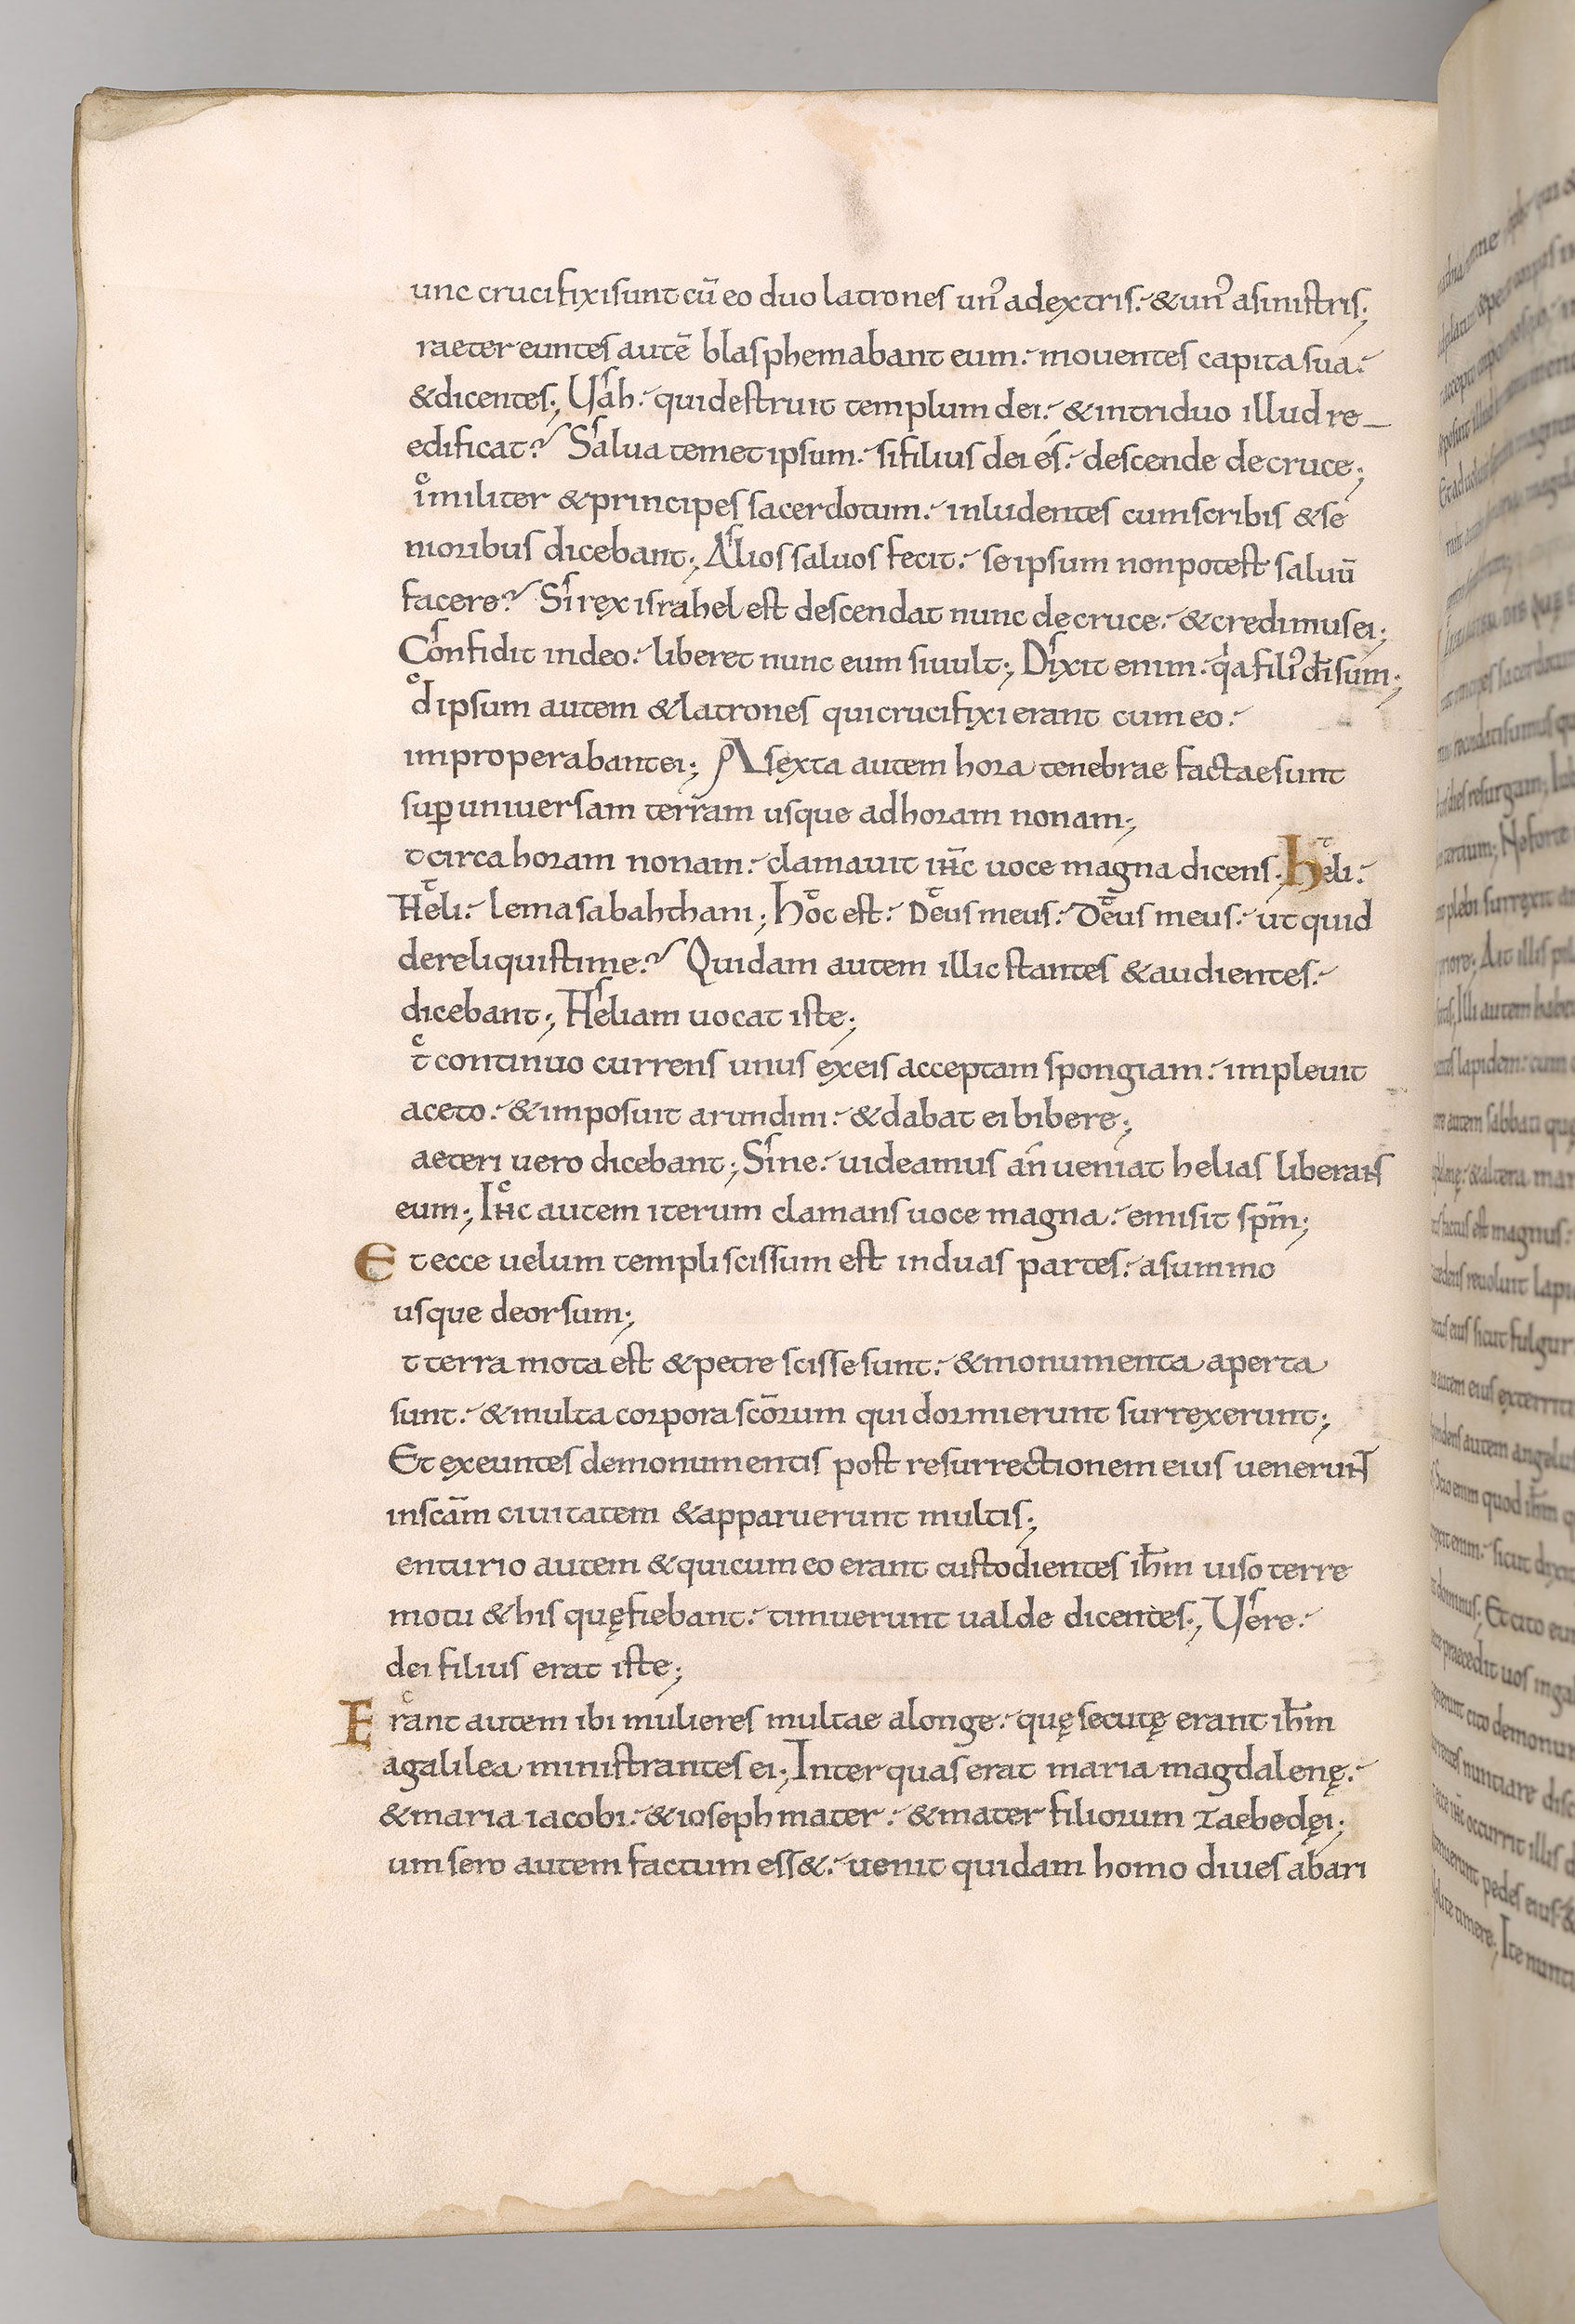 unc crucifixi sunt cū eo duo latrones un᾽ adextris. & un᾽ asinistris;
raeter euntes autē blasphemabant eum. mouentes capita sua.
& dicentes; Uah. qui destruit templum dei. & in triduo illud re_
edificat? Salua temet ipsum. si filius dei és. descende de cruce;
imiliter & principes sacerdotum. inludentes cum scribis & se
nioribus dicebant; Alios saluos fecit. se ipsum non potest saluū
facere? Si rex israhel est descendat nunc de cruce. & credimus ei;
Confidit in deo. liberet nunc eum si uult; Dixit enim. qa fili᾽ dī sum;
d ipsum autem & latrones qui crucifixi erant cum eo.
improperabant ei; A sexta autem hora tenebrae factae sunt
sup uniuersam terram usque ad horam nonam;
t circa horam nonam. clamauit iħc uoce magna dicens. heli.
Heli. lema sabahthani; hoc est. Deus meus. Deus meus. ut quid
dereliquisti me? Quidam autem illic stantes & audientes.
dicebant; Heliam uocat iste;
t continuo currens unus ex eis acceptam spongiam. impleuit
aceto. & imposuit arundini. & dabat ei bibere;
aeteri uero dicebant; Sine. uideamus an ueniat helias liberans
eum; Iħc autem iterum clamans uoce magna. emisit spm̄;
Et ecce uelum templi scissum est in duas partes. asummo
usque deorsum;
t terra mota est & petre scisse sunt. & monumenta aperta
sunt. & multa corpora scōrum qui dormierunt surrexerunt;
Et exeuntes de monumentis post resurrectionem eius uenerunt
in scām ciuitatem & apparuerunt multis;
enturio autem & qui cum eo erant custodientes ihm̄ uiso terre
motu & his quę fiebant. timuerunt ualde dicentes; Uere.
dei filius erat iste;
Erant autem ibi mulieres multae alonge. quę secutę erant ihm̄
agalilea ministrantes ei; Inter quas erat maria magdalenę.
& maria iacobi. & ioseph mater. & mater filiorum zaebedęi;
um sero autem factum ess&. uenit quidam homo diues ab ari